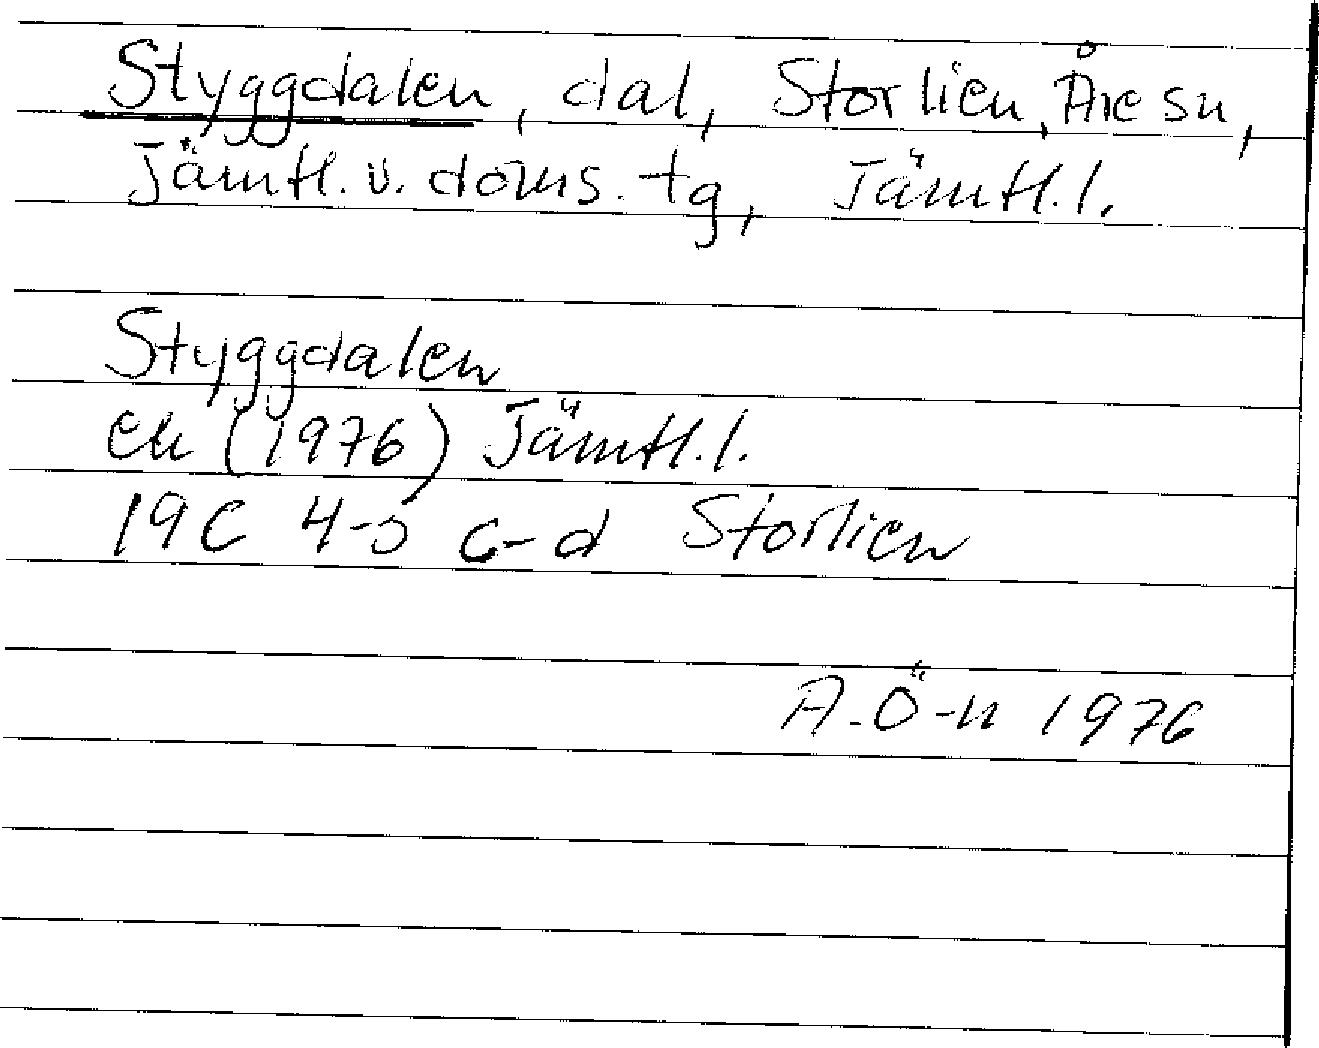 Styggdalen, dal, Storlien, Åre sn,
Jämtl. v. doms. tg, Jämtl. l.
Styggdalen
ek (1976) Jämtl. l.
19C 4-5 c-d Storlien
A. Ö-n 1976